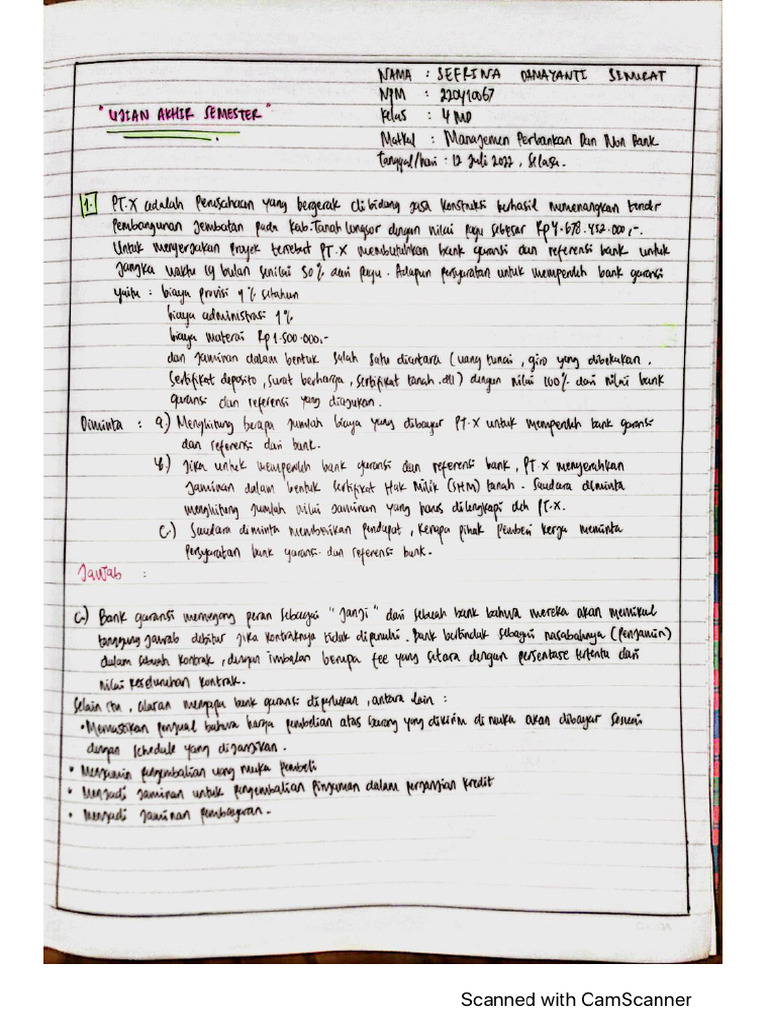 NAMA : SEFRINA DAMAYANTI SINURAT
NPM : 220410067
"UJIAN AKHIR SEMESTER"
Kelas : 4 MP
Matkul : Manajemen Perbankan Dan Non Bank
Tanggal/hari : 12 Juli 2022, Selasa.
1. PT.X adalah Perusahaan yang bergerak dibidang jasa konstruksi berhasil memenangkan tender
Pembangunan Jembatan pada Kab.Tanah Longsor dengan nilai pagu sebesar Rp 4.678.452.000,-.
Untuk mengerjakan Proyek tersebut PT.X membutuhkan bank garansi dan referensi bank untuk
jangka waktu 19 bulan senilai 50% dari pagu. Adapun persyaratan untuk memperoleh bank garansi
yaitu : biaya provisi 4% setahun
biaya administrasi 1%
biaya materai Rp 1.500.000,-
dan Jaminan dalam bentuk salah satu diantara (uang tunai, giro yang dibekukan.
Sertifikat deposito, surat berharga, sertifikat tanah.dll) dengan nilai 100% dari nilai bank
garansi dan referensi yang diajukan.
Diminta : a.) Menghitung berapa jumlah biaya yang dibayar PT.X untuk memperoleh bank garansi
dan referensi dari bank.
b.) Jika untuk memperoleh bank garansi dan referensi bank, PT.X menyerahkan
Jaminan dalam bentuk Sertifikat Hak Milik (SHM) tanah. Saudara diminta
menghitung jumlah nilai jaminan yang harus dilengkapi oleh PT.X.
c.) Saudara diminta memberikan pendapat, kenapa pihak pemberi kerja meminta
Persyaratan bank garansi dan referensi bank.
Jawab :
c.) Bank garansi memegang peran sebagai "Janji" dari sebuah bank bahwa mereka akan memikul
tanggung jawab debitur jika kontraknya tidak dipenuhi. Bank bertindak sebagai nasabahnya (penjamin)
dalam sebuah kontrak, dengan imbalan berupa fee yang setara dengan persentase tertentu dari
nilai keseluruhan kontrak.
Selain itu, alasan mengapa bank garansi diperlukan, antara lain :
• Memastikan penjual bahwa harga pembelian atas barang yang dikirim di muka akan dibayar sesuai
dengan schedule yang dijanjikan.
• Menjamin pengembalian uang muka pembeli
• Menjadi jaminan untuk pengembalian pinjaman dalam perjanjian kredit
• Menjadi jaminan pembayaran.
Scanned with CamScanner